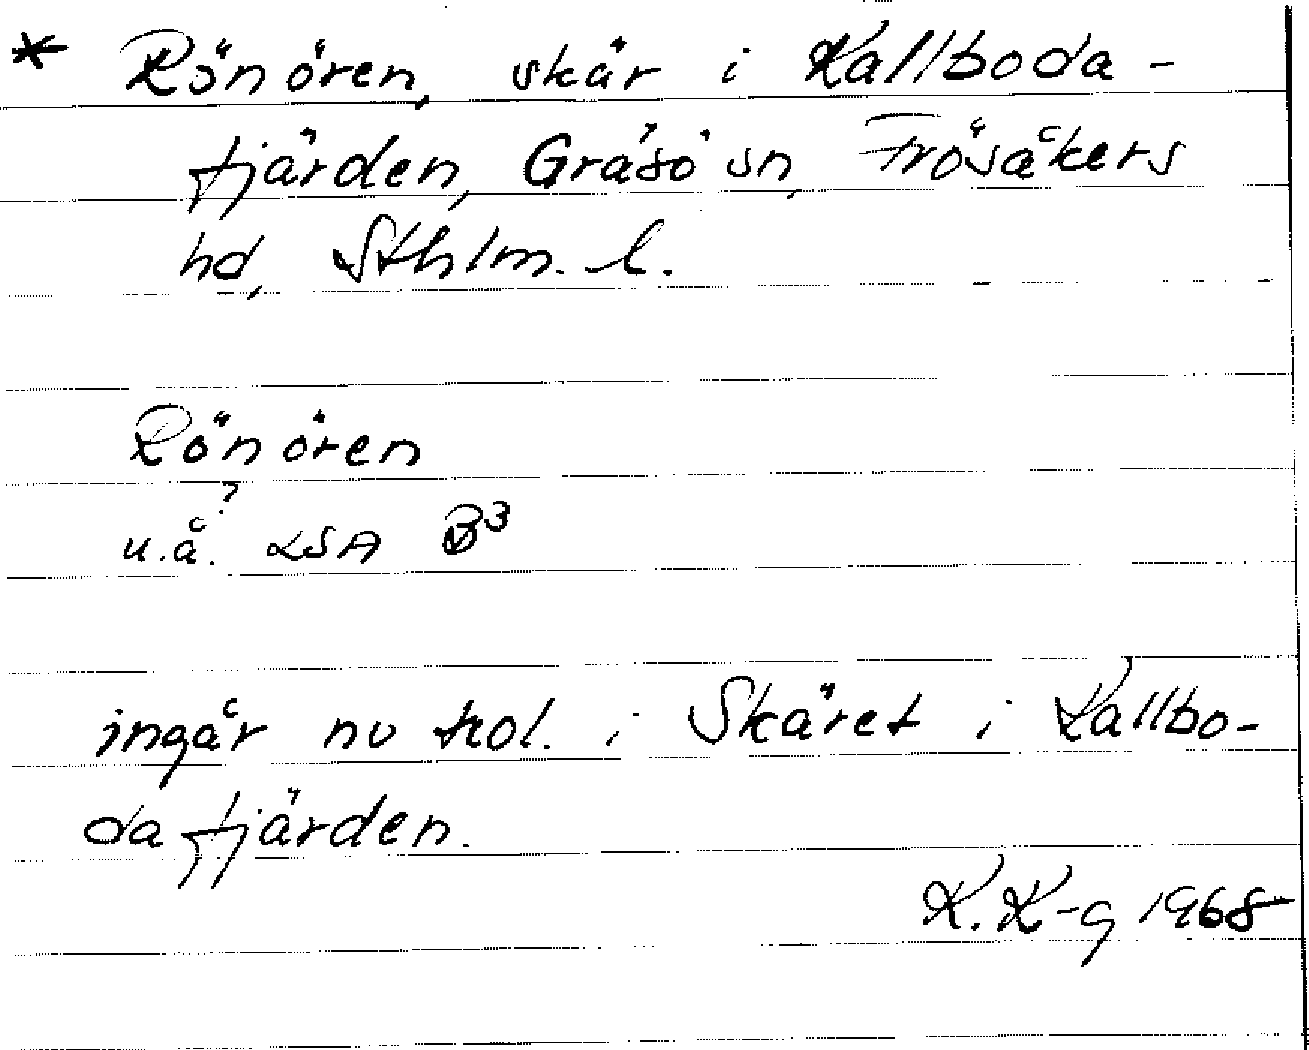 * Rönören, skär i Kallboda-
fjärden, Gräsö sn, Frösåkers
hd, Sthlm. l.
Rönören
?
u.å. LSA B³
ingår nu trol. i Skäret i Kallbo-
dafjärden.
K. K-g 1968